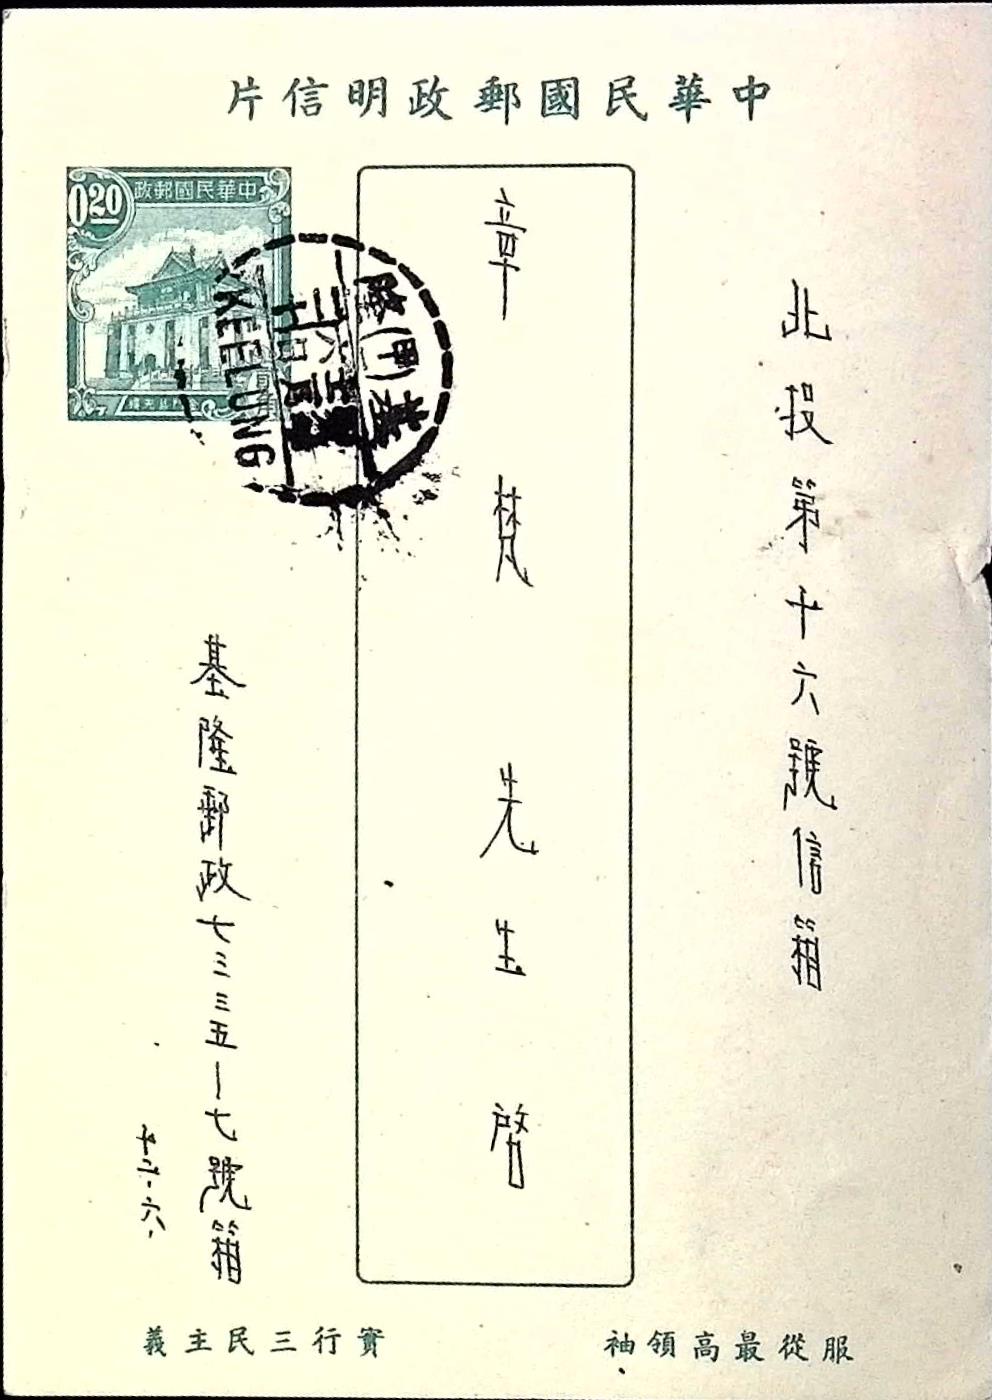 中華民國郵政明信片
中華民國郵政
0.20
KEELUNG
基隆(甲)
北投第十六號信箱
章梵先生啓
基隆郵政七三三五—七號箱
十二.六.
服從最高領袖
實行三民主義